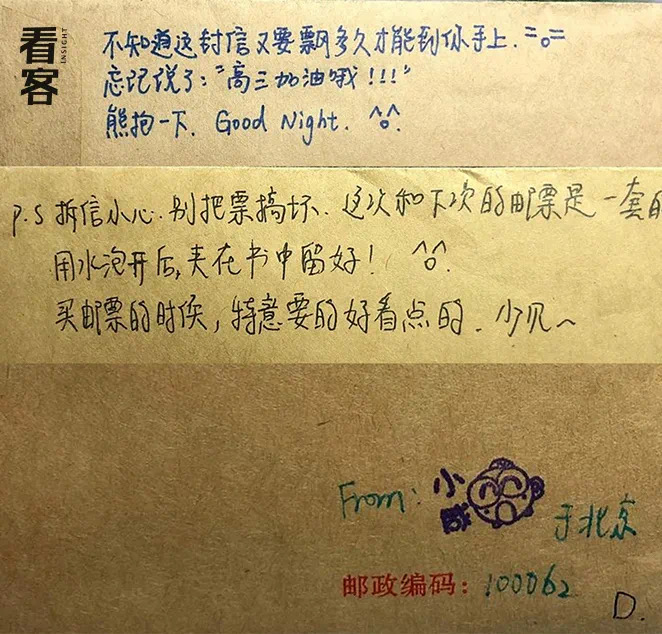 看客
INSIGHT
不知道这封信又要飘多久才能到你手上. =o=
忘记说了:"高三加油哦!!!"
熊抱一下. Good Night. ^o^.
P.S 拆信小心.别把票搞坏. 这次和下次的邮票是一套的
用水泡开后,夹在书中留好! ^o^.
买邮票的时候,特意要的好看点的. 少见~
From: 小 于北京
邮政编码: 100062
D.